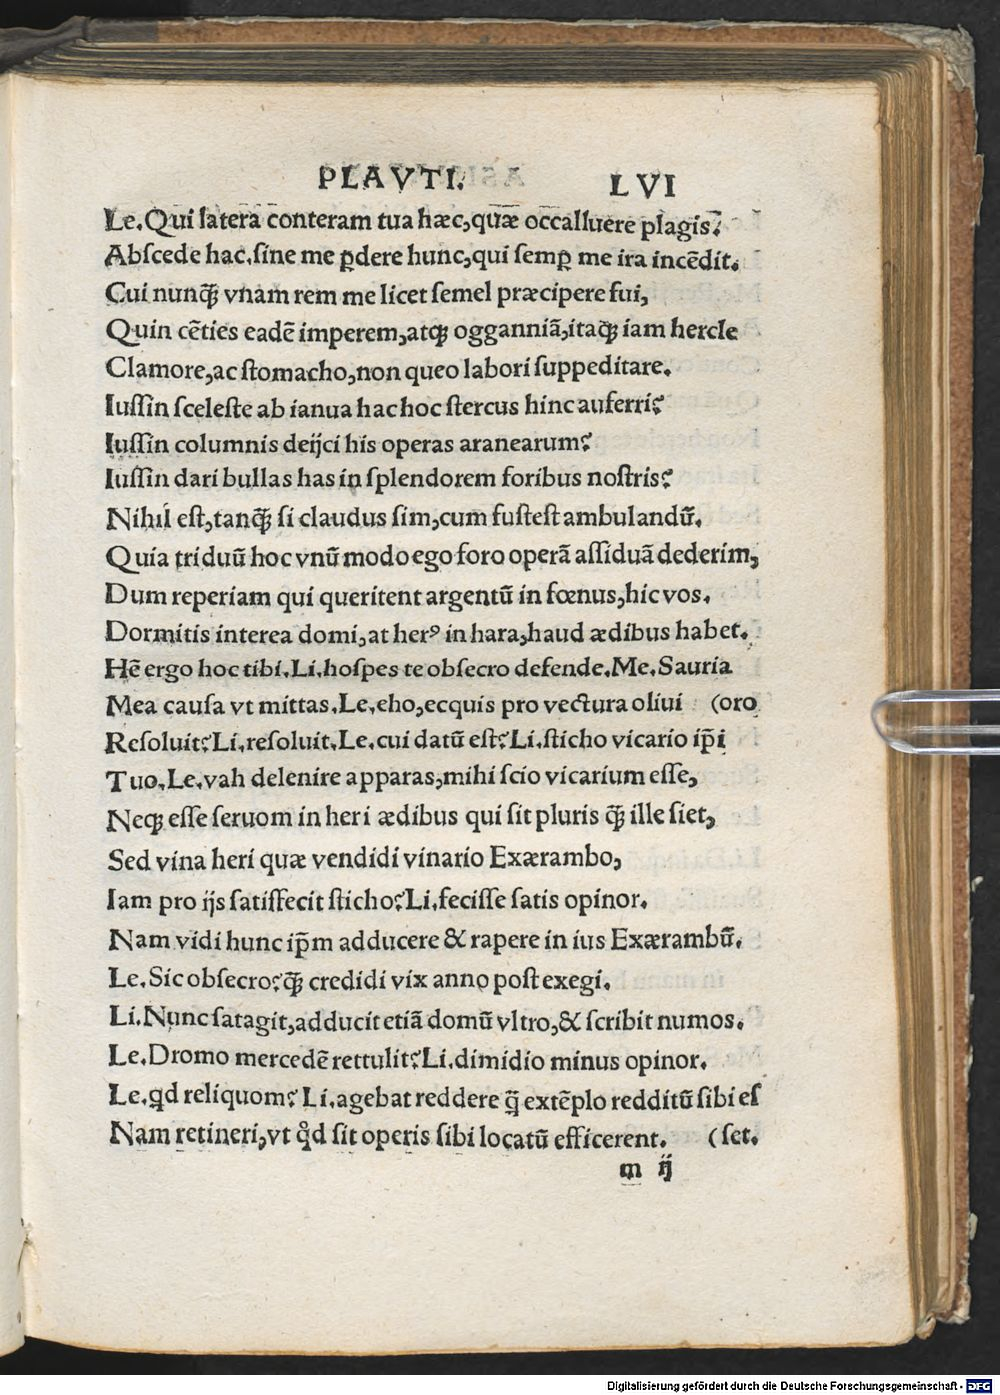 PLAVTI. LVI
Le.Qui latera conteram tua hæc,quæ occalluere plagis?
Abſcede hac.ſine me ꝑdere hunc,qui ſemꝑ me ira incēdit.
Cui nunꝗ̄ vnam rem me licet ſemel præcipere fui,
Quin cēties eadē imperem,atꝗ ogganniā,itaꝗ iam hercle
Clamore,ac ſtomacho,non queo labori ſuppeditare.
Iuſſin ſceleſte ab ianua hac hoc ſtercus hinc auferri?
Iuſſin columnis deijci his operas aranearum?
Iuſſin dari bullas has in ſplendorem foribus noſtris?
Nihil eſt,tanꝗ̄ ſi claudus ſim,cum fuſteſt ambulandū.
Quia triduū hoc vnū modo ego foro operā aſſiduā dederim,
Dum reperiam qui queritent argentū in fœnus,hic vos.
Dormitis interea domi,at herꝰ in hara,haud ædibus habet.
Hē ergo hoc tibi.Li.hoſpes te obſecro defende.Me.Sauria
Mea cauſa vt mittas.Le.eho,ecquis pro vectura oliui (oro
Reſoluit?Li.reſoluit.Le.cui datū eſt?Li.ſticho vicario ip̄i
Tuo.Le.vah delenire apparas,mihi ſcio vicarium eſſe,
Neꝗ eſſe ſeruom in heri ædibus qui ſit pluris ꝗ̄ ille ſiet,
Sed vina heri quæ vendidi vinario Exærambo,
Iam pro ijs ſatiſfecit ſticho?Li.feciſſe ſatis opinor.
Nam vidi hunc ip̄m adducere & rapere in ius Exærambū.
Le.Sic obſecro?ꝗ̄ credidi vix anno poſt exegi.
Li.Nunc ſatagit,adducit etiā domū vltro,& ſcribit numos.
Le.Dromo mercedē rettulit?Li.dimidio minus opinor.
Le.ꝗd reliquom?Li.agebat reddere q̄ extēplo redditū ſibi eſ
Nam retineri,vt qͥd ſit operis ſibi locatū efficerent. (ſet.
m ij
Digitalisierung gefördert durch die Deutsche Forschungsgemeinschaft - DFG